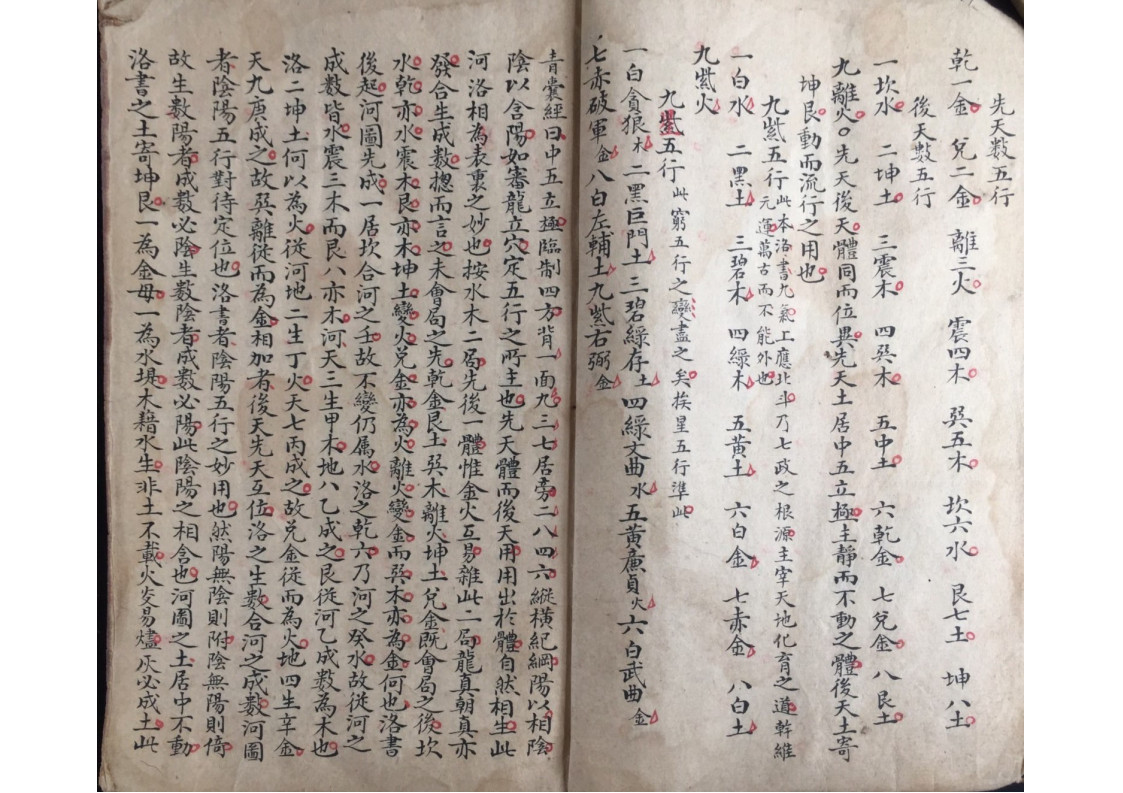 先天數五行
乾一金 兌二金 離三火 震四木 巽五木 坎六水 艮七土 坤八土
後天數五行
一坎水 二坤土 三震木 四巽木 五中土 六乾金 七兌金 八艮土
九離火○先天後天體同而位異先天土居中五立極主靜而不動之體後天土寄
坤艮動而流行之用也
九紫五行此本洛書九氣上應北斗乃七政之根源主宰天地化育之道幹維
元運萬古而不能外也
一白水 二黑土 三碧木 四綠木 五黃土 六白金 七赤金 八白土
九紫火
九紫五行此窮五行之變盡之矣挨星五行準此
一白貪狼木 二黑巨門土 三碧綠存土 四綠文曲水 五黃廉貞火 六白武曲金
七赤破軍金 八白左輔土 九紫右弼金
青囊經曰中五立極臨制四方背一面九三七居旁二八四六縱橫紀綱陽以相陰
陰以含陽如審龍立穴定五行之所主也先天體而後天用用出於體自然相生此
河洛相為表裏之妙也按水木二局先後一體惟金火互易雜此二局龍真朝真亦
發合生成數揔而言之未會局之先乾金艮土巽木離火坤土兌金既會局之後坎
水乾亦水震木艮亦木坤土變火兌金亦為火離火變金而巽木亦為金何也洛書
後起河圖先成一居坎合河之壬故不變仍属水洛之乾六乃河之癸水故從河之
成數皆水震三木而艮八亦木河天三生甲木地八乙成之艮從河乙成數為木也
洛二坤土何以為火從河地二生丁火天七丙成之故兌金從而為火地四生辛金
天九庚成之故巽離從而為金相加者後天先天互位洛之生數合河之成數河圖
者陰陽五行對待定位也洛書者陰陽五行之妙用也然陽無陰則附陰無陽則倚
故生數陽者成數必陰生數陰者成數必陽此陰陽之相含也河圖之土居中不動
洛書之土寄坤艮一為金母一為水堤木籍水生非土不載火炎易燼灰必成土此